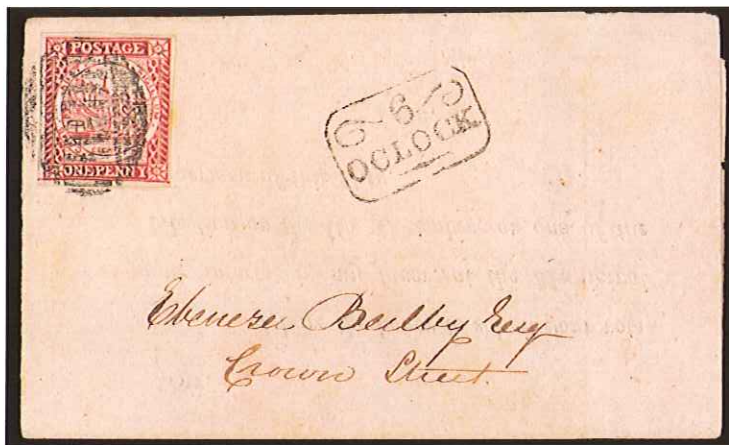 POSTAGE
ONE PENNY
6
OCLOCK
Ebenezer Bulby Esq
Crown Street.